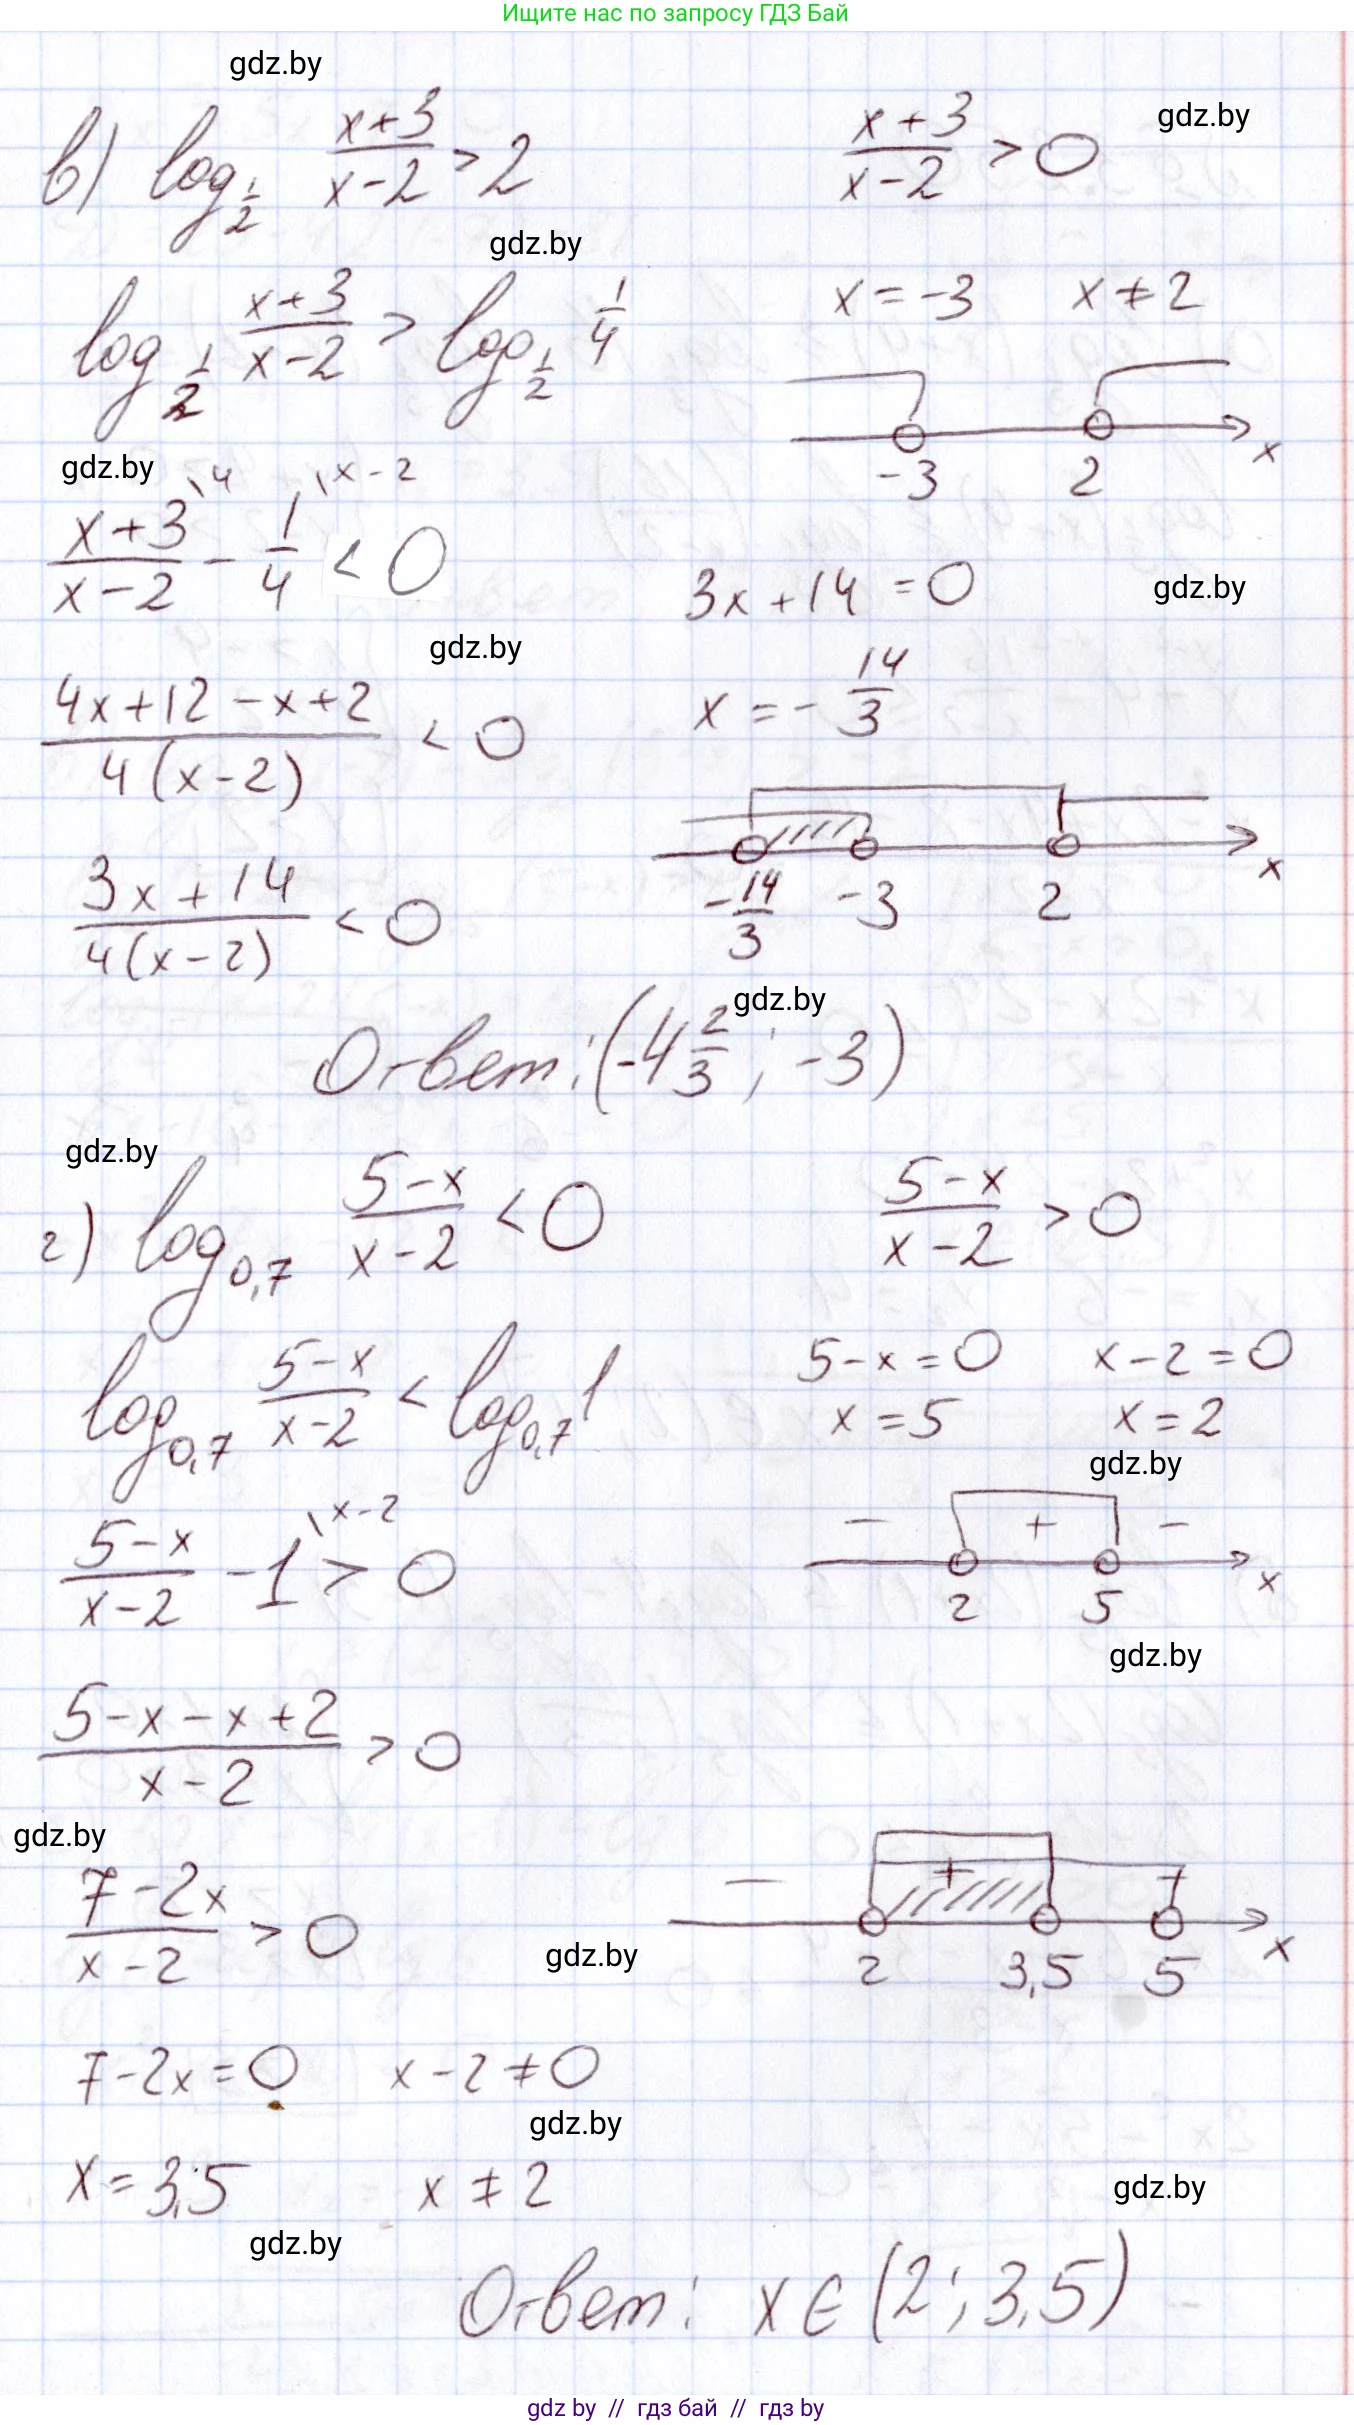 Ищите нас по запросу ГДЗ Бай
gdz.by
в) log_{1/2} (x+3)/(x-2) > 2
(x+3)/(x-2) > 0
gdz.by
gdz.by
log_{1/2} (x+3)/(x-2) > log_{1/2} 1/4
x = -3 x ≠ 2
-3 2 x
gdz.by
(x+3)/(x-2) \4 - 1/4 \x-2 < 0
3x + 14 = 0
gdz.by
gdz.by
(4x+12-x+2)/(4(x-2)) < 0
x = -14/3
(3x+14)/(4(x-2)) < 0
-14/3 -3 2 x
gdz.by
Ответ: (-4 2/3; -3)
gdz.by
г) log_{0,7} (5-x)/(x-2) < 0
(5-x)/(x-2) > 0
log_{0,7} (5-x)/(x-2) < log_{0,7} 1
5-x=0 x-2=0
x=5 x=2
gdz.by
(5-x)/(x-2) - 1 \x-2 > 0
- + -
2 5 x
gdz.by
(5-x-x+2)/(x-2) > 0
gdz.by
(7-2x)/(x-2) > 0
- + +
2 3,5 5 x
gdz.by
7-2x=0 x-2≠0
gdz.by
x=3,5 x≠2
gdz.by
gdz.by
Ответ: x∈(2; 3,5)
gdz by // гдз бай // гдз by